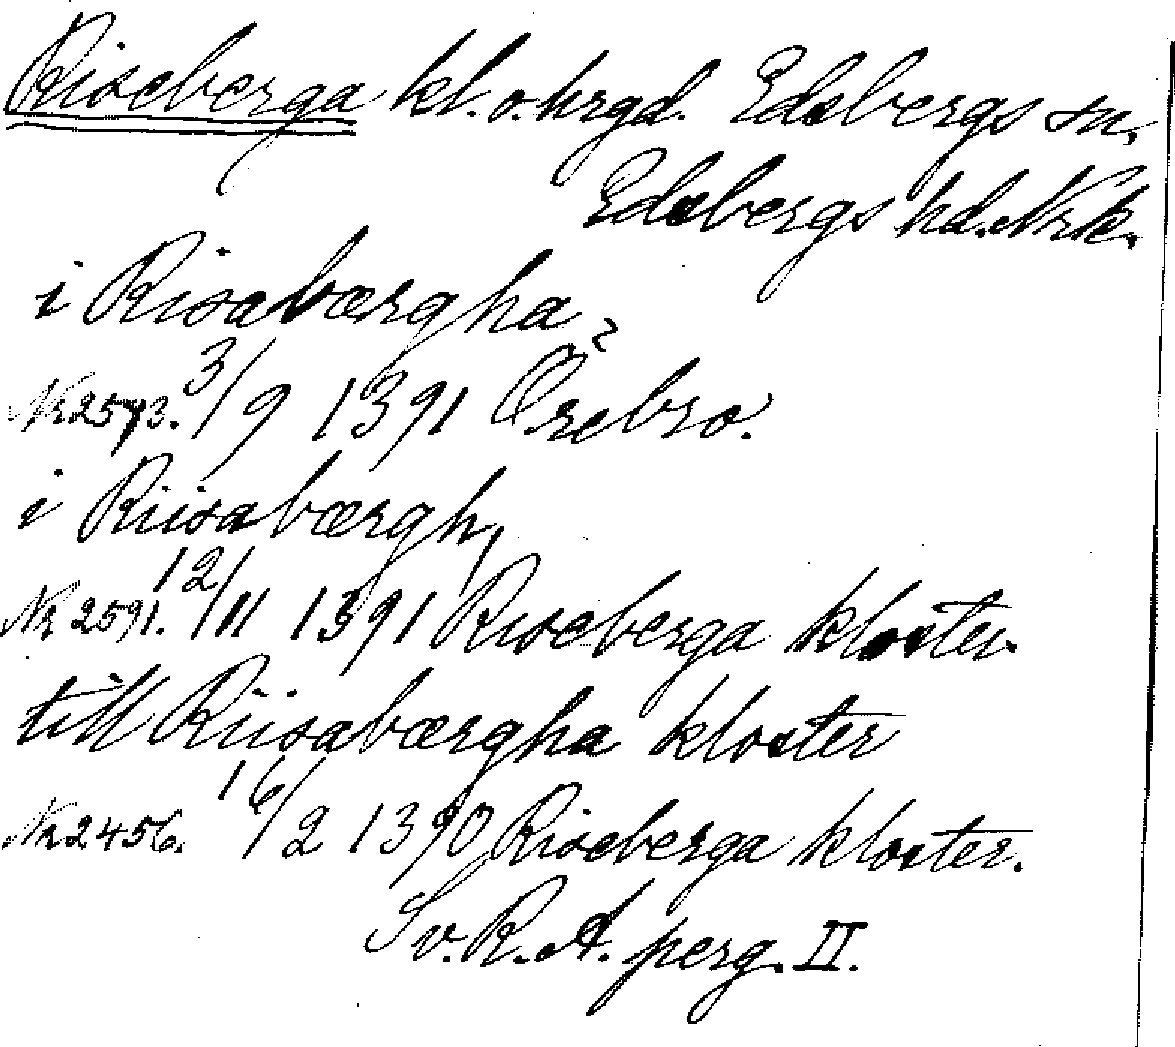 Riseberga kl. o. hrgd. Edsbergs sn.
Edsbergs hd. Nrk.
i Risabærgha
Nr 2573. 3/9 1391 Örebro.
i Riisabærgh,
Nr 2591. 12/11 1391 Riseberga kloster.
till Riisabærgha kloster
Nr 2456. 16/2 1390 Riseberga kloster.
Sv. R. A. perg. II.